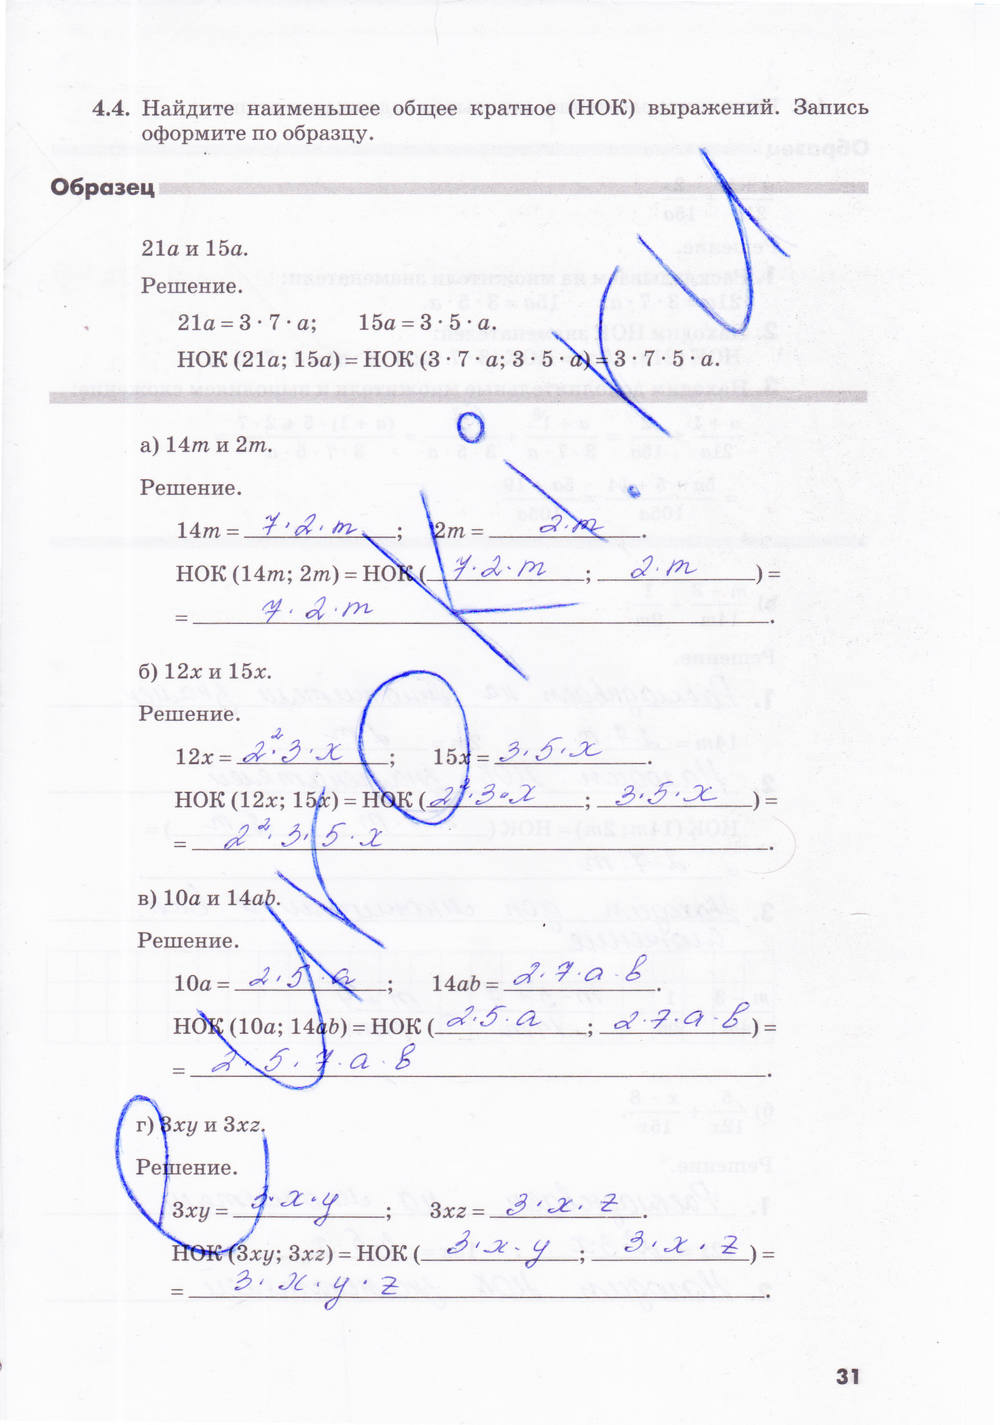 4.4. Найдите наименьшее общее кратное (НОК) выражений. Запись
оформите по образцу.
Образец
21a и 15a.
Решение.
21a = 3 · 7 · a; 15a = 3 · 5 · a.
НОК (21a; 15a) = НОК (3 · 7 · a; 3 · 5 · a) = 3 · 7 · 5 · a.
а) 14m и 2m.
Решение.
14m = 7 · 2 · m; 2m = 2 · m.
НОК (14m; 2m) = НОК (7 · 2 · m; 2 · m) =
= 7 · 2 · m.
б) 12x и 15x.
Решение.
12x = 2² · 3 · x; 15x = 3 · 5 · x.
НОК (12x; 15x) = НОК (2² · 3 · x; 3 · 5 · x) =
= 2² · 3 · 5 · x.
в) 10a и 14ab.
Решение.
10a = 2 · 5 · a; 14ab = 2 · 7 · a · b.
НОК (10a; 14ab) = НОК (2 · 5 · a; 2 · 7 · a · b) =
= 2 · 5 · 7 · a · b.
г) 3xy и 3xz.
Решение.
3xy = 3 · x · y; 3xz = 3 · x · z.
НОК (3xy; 3xz) = НОК (3 · x · y; 3 · x · z) =
= 3 · x · y · z.
31